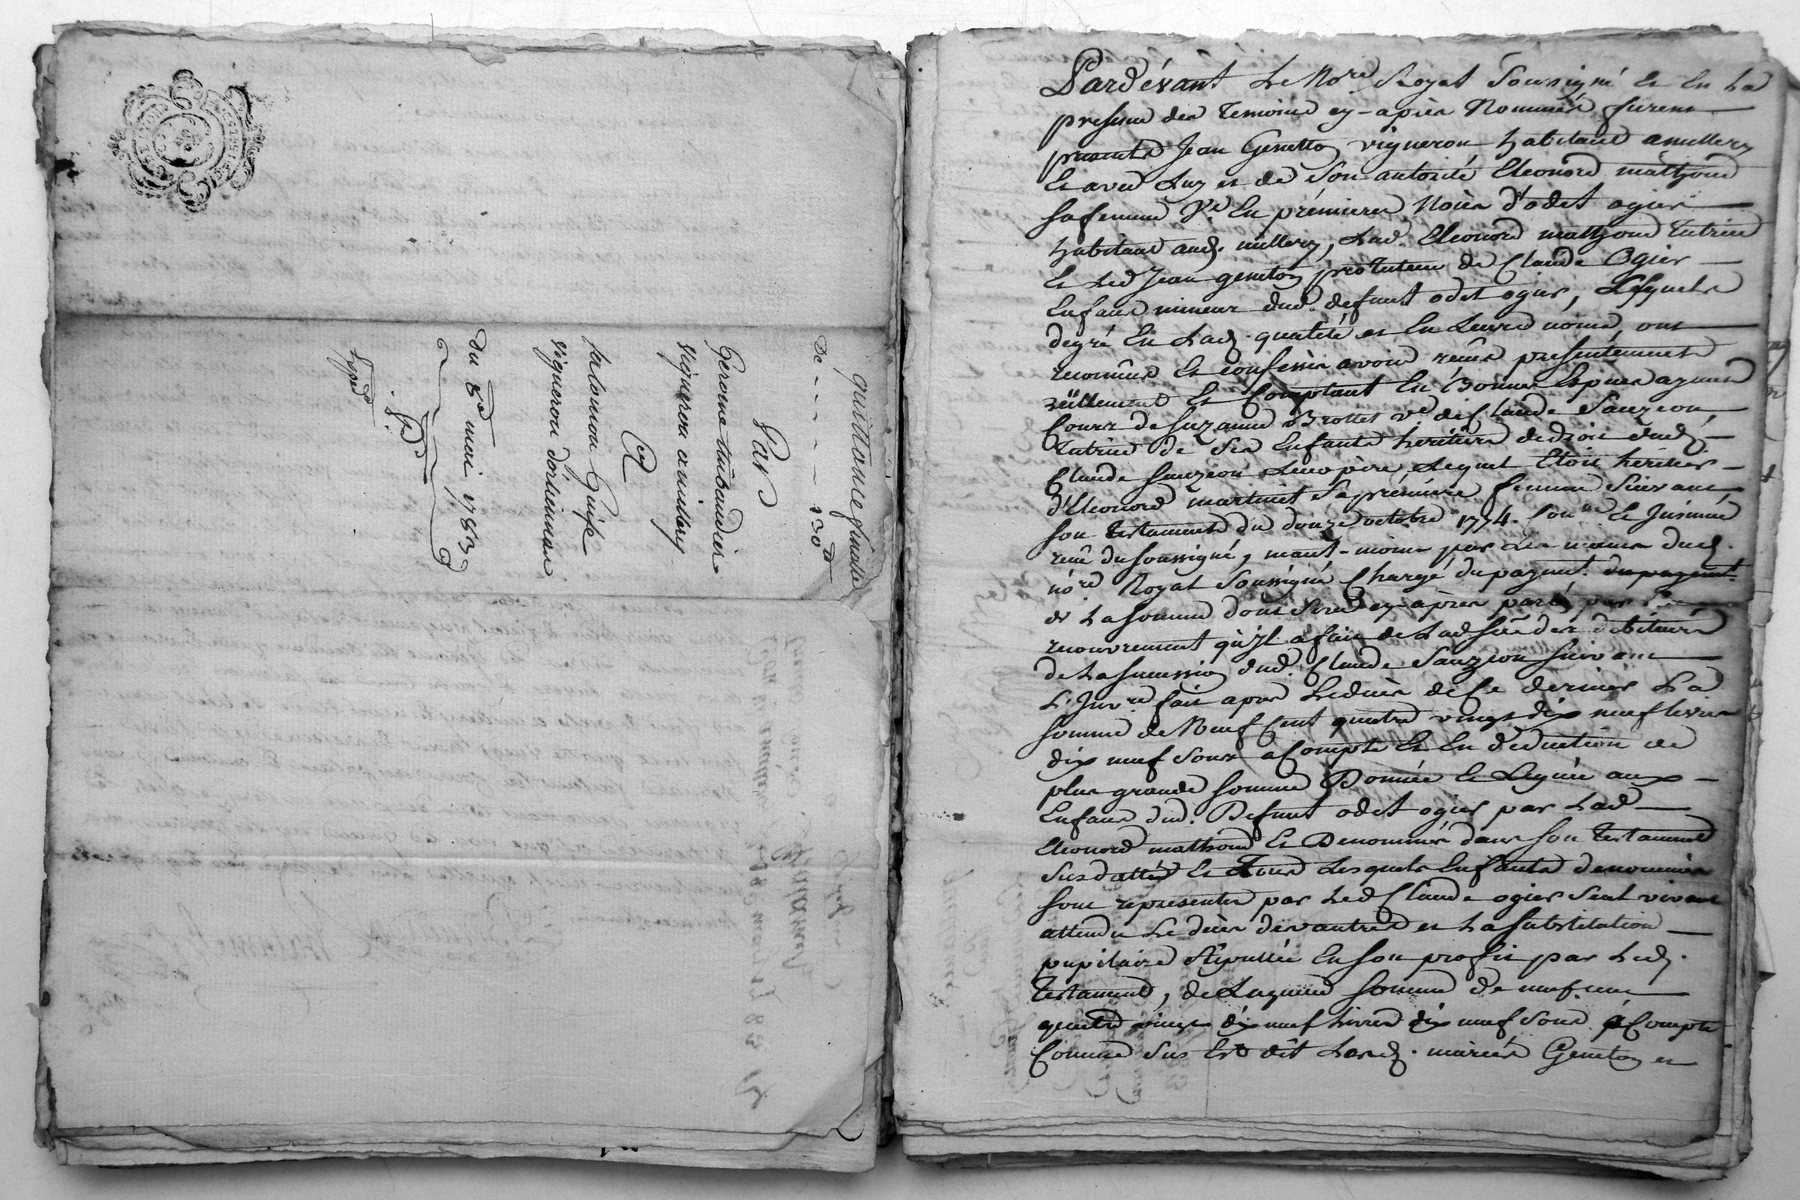 quittance finalle
De - - - - - 130 tt
Par
Gereome thibaudier
vigneron a millery
A
palemon Guife
vigneron d'orlienas
du 8e mai 1783
Exped
Pardévant Le No.re Royal Soussigné Et En La
presence des temoins cy-après Nommés furent
presents Jean Genetton vigneron habitant a millery
Et avec Luy et de Son autorité Eleonord mathond
sa femme V.e En prémieres Noces d'odet ogier
habitant aud. millery, Lad. Eleonord mathond Tutrice
Et Led Jean genetton protuteur de Claude Ogier
Enfant mineur dud. defunt odet ogier, Lesquels
dégré En Lad. qualité et En Leurs noms, ont
reconnus Et confessés avoir reçus presentement
réellement Et Comptant En Bonnes Especes ayant
Cours de Suzanne Brottet v.e de Claude Sauzeon,
Tutrice de Ses Enfants heritiers de droit dud.
Claude Sauzeon Leur père, Lequel Etoit heritier
d'Eleonord martinet Sa prémière femme Suivant
son testament du douze octobre 1774. Con.lé Et Insinué
reçu du soussigné, par Les mains dud.
no.re Royal Soussigné Chargé du payem.t
de La somme dont Sera cy-après parlé, par Le
recouvrement qu'jl a fait de Lad. des debiteurs
de La succession dud. Claude Sauzeon Suivant
L'Inv.re fait après Le décès de Ce dernier La
somme de Neuf Cent quatre vingt dix neuf livres
dix neuf Sous a Compte Et En deduction de
plus grande somme Donnée Et Leguée aux
Enfans dud. Defunt odet ogier par Lad.
Eleonord mathond Et Denommés dans Son Testament
Susdatté Et Tous Lesquels Enfants denommés
sont representés par Led Claude ogier Seul vivant
attendu Le décès des autres et La Substitution
pupilaire Stipullée En Son profit par Led.
Testament, de Laquelle Somme de neuf cent
quatre vingt dix neuf Livres dix neuf Sous a Compte
Comme Sus Est dit Lesd. mariés Genetton et